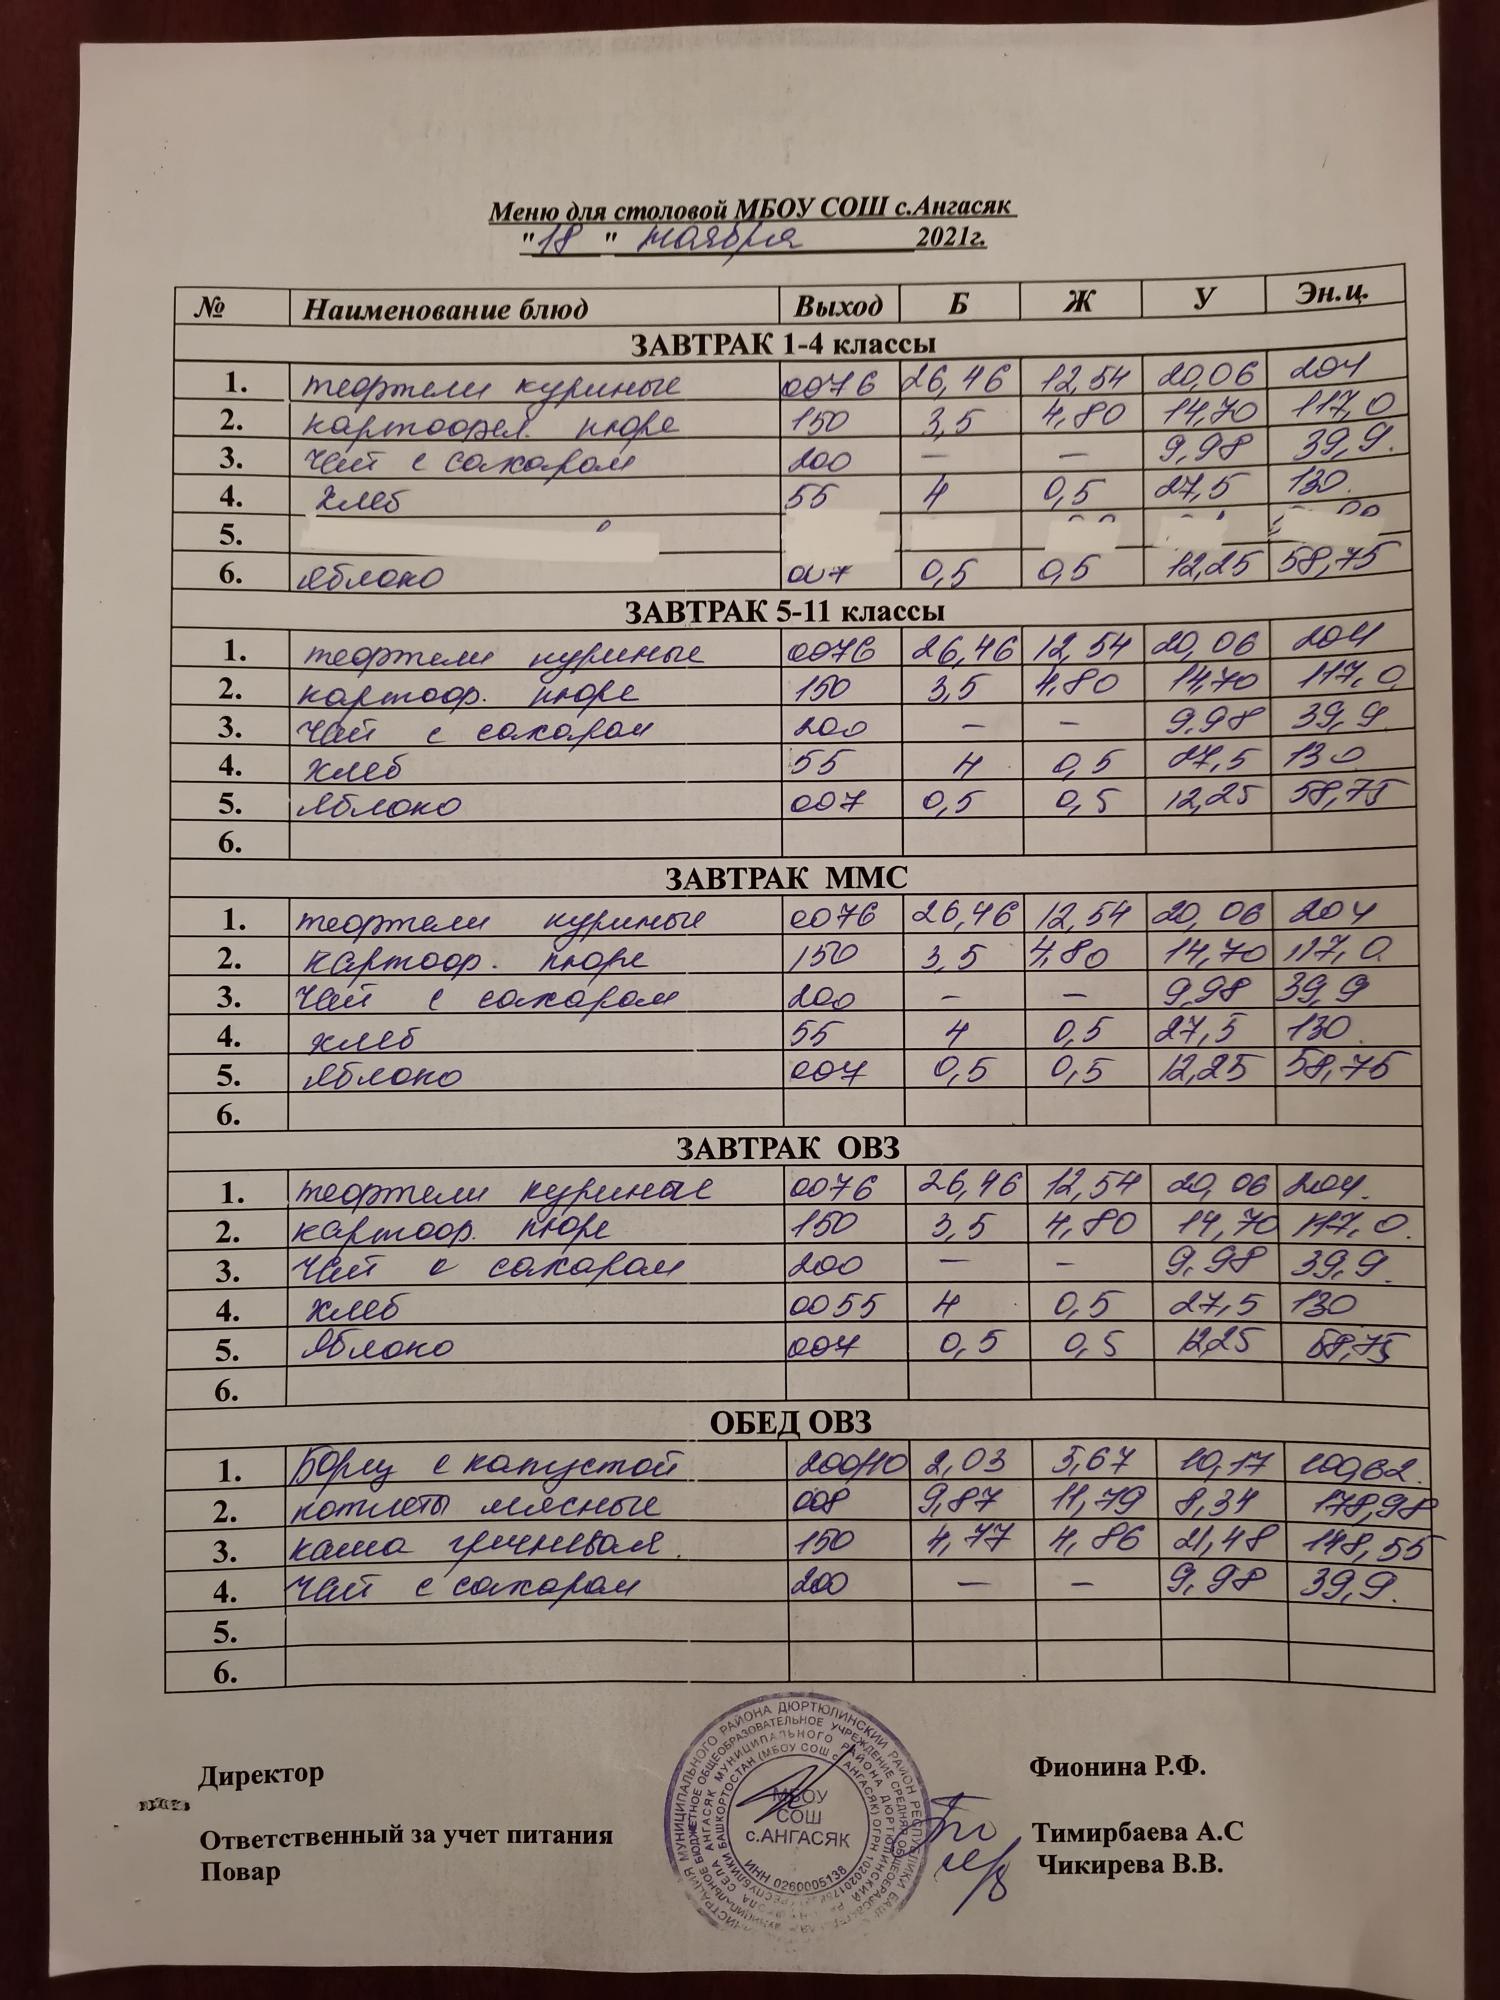 Меню для столовой МБОУ СОШ с.Ангасяк
"18" ноября 2021г.
№ Наименование блюд Выход Б Ж У Эн.ц.
ЗАВТРАК 1-4 классы
1. тефтели куриные 0076 26,46 12,54 20,06 204
2. картофел. пюре 150 3,5 4,80 14,70 117,0
3. чай с сахаром 200 — — 9,98 39,9.
4. хлеб 55 4 0,5 27,5 130.
5.
6. яблоко 007 0,5 0,5 12,25 58,75
ЗАВТРАК 5-11 классы
1. тефтели куриные 0076 26,46 12,54 20,06 204
2. картоф. пюре 150 3,5 4,80 14,70 117,0
3. чай с сахаром 200 — — 9,98 39,9.
4. хлеб 55 4 0,5 27,5 130
5. яблоко 007 0,5 0,5 12,25 58,75
6.
ЗАВТРАК ММС
1. тефтели куриные 0076 26,46 12,54 20,06 204
2. картоф. пюре 150 3,5 4,80 14,70 117,0
3. чай с сахаром 200 — — 9,98 39,9
4. хлеб 55 4 0,5 27,5 130.
5. яблоко 007 0,5 0,5 12,25 58,75
6.
ЗАВТРАК ОВЗ
1. тефтели куриные 0076 26,46 12,54 20,06 204.
2. картоф. пюре 150 3,5 4,80 14,70 117,0.
3. чай с сахаром 200 — — 9,98 39,9.
4. хлеб 0055 4 0,5 27,5 130
5. яблоко 007 0,5 0,5 12,25 58,75
6.
ОБЕД ОВЗ
1. Борщ с капустой 200/10 2,03 3,67 10,17
2. котлеты мясные 008 9,87 11,79 8,34 178,98
3. каша гречневая. 150 4,77 4,86 21,48 148,55
4. чай с сахаром 200 — — 9,98 39,9.
5.
6.
Директор Фионина Р.Ф.
Ответственный за учет питания Тимирбаева А.С
Повар Чикирева В.В.
МБОУ
СОШ
с.АНГАСЯК
ИНН 0260005138